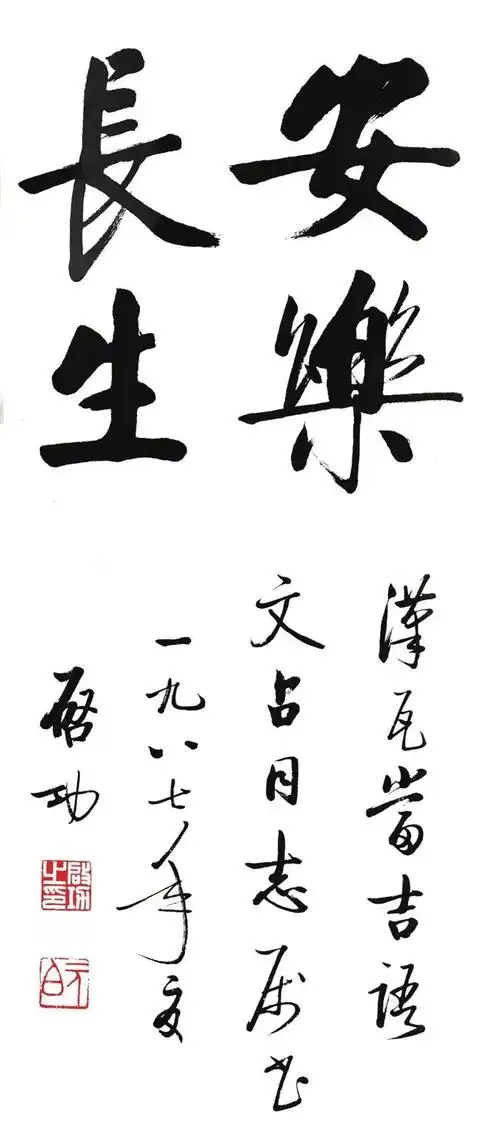 安樂
長生
漢瓦當吉語
文占同志属书
一九八七年夏
啓功
啓功之印
元白